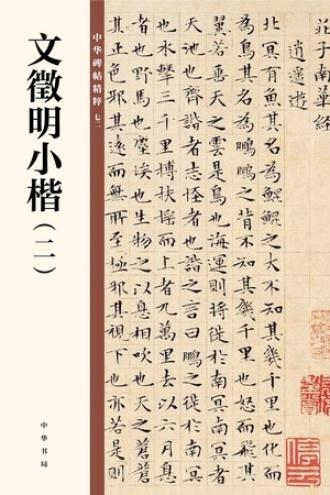 中华碑帖精粹 七二
文徵明小楷（二）
中华书局
莊子南華
逍遥遊
北冥有魚其名為鯤鯤之大不知其幾千里也化而
為鳥其名為鵬鵬之背不知其幾千里也怒而飛其
翼若垂天之雲是鳥也海運則將徙於南冥南冥者
天池也齊諧者志怪者也諧之言曰鵬之徙於南冥
也水擊三千里摶扶摇而上者九萬里去以六月息
者也野馬也塵埃也生物之以息相吹也天之蒼蒼
其正色邪其遠而無所至極邪其視下也亦若是則